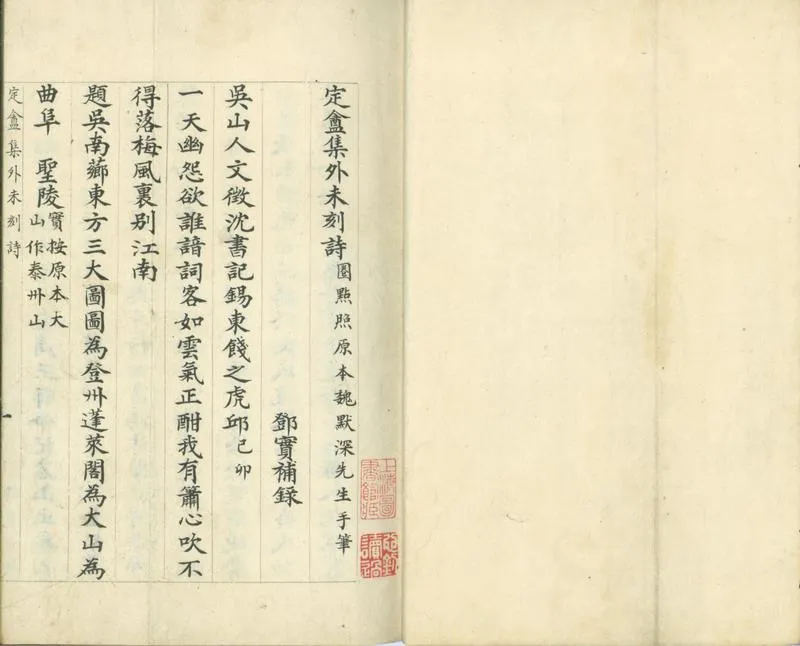 定盦集外未刻詩圈點照原本魏默深先生手筆
鄧實補錄
吳山人文徵沈書記錫東餞之虎邱己卯
一天幽怨欲誰諳詞客如雲氣正酣我有簫心吹不
得落梅風裏别江南
題吳南薌東方三大圖圖為登州蓬萊閣為大山為
曲阜 聖陵實按原本大
山作泰州山
定盦集外未刻詩
上海圖書館藏
讀過